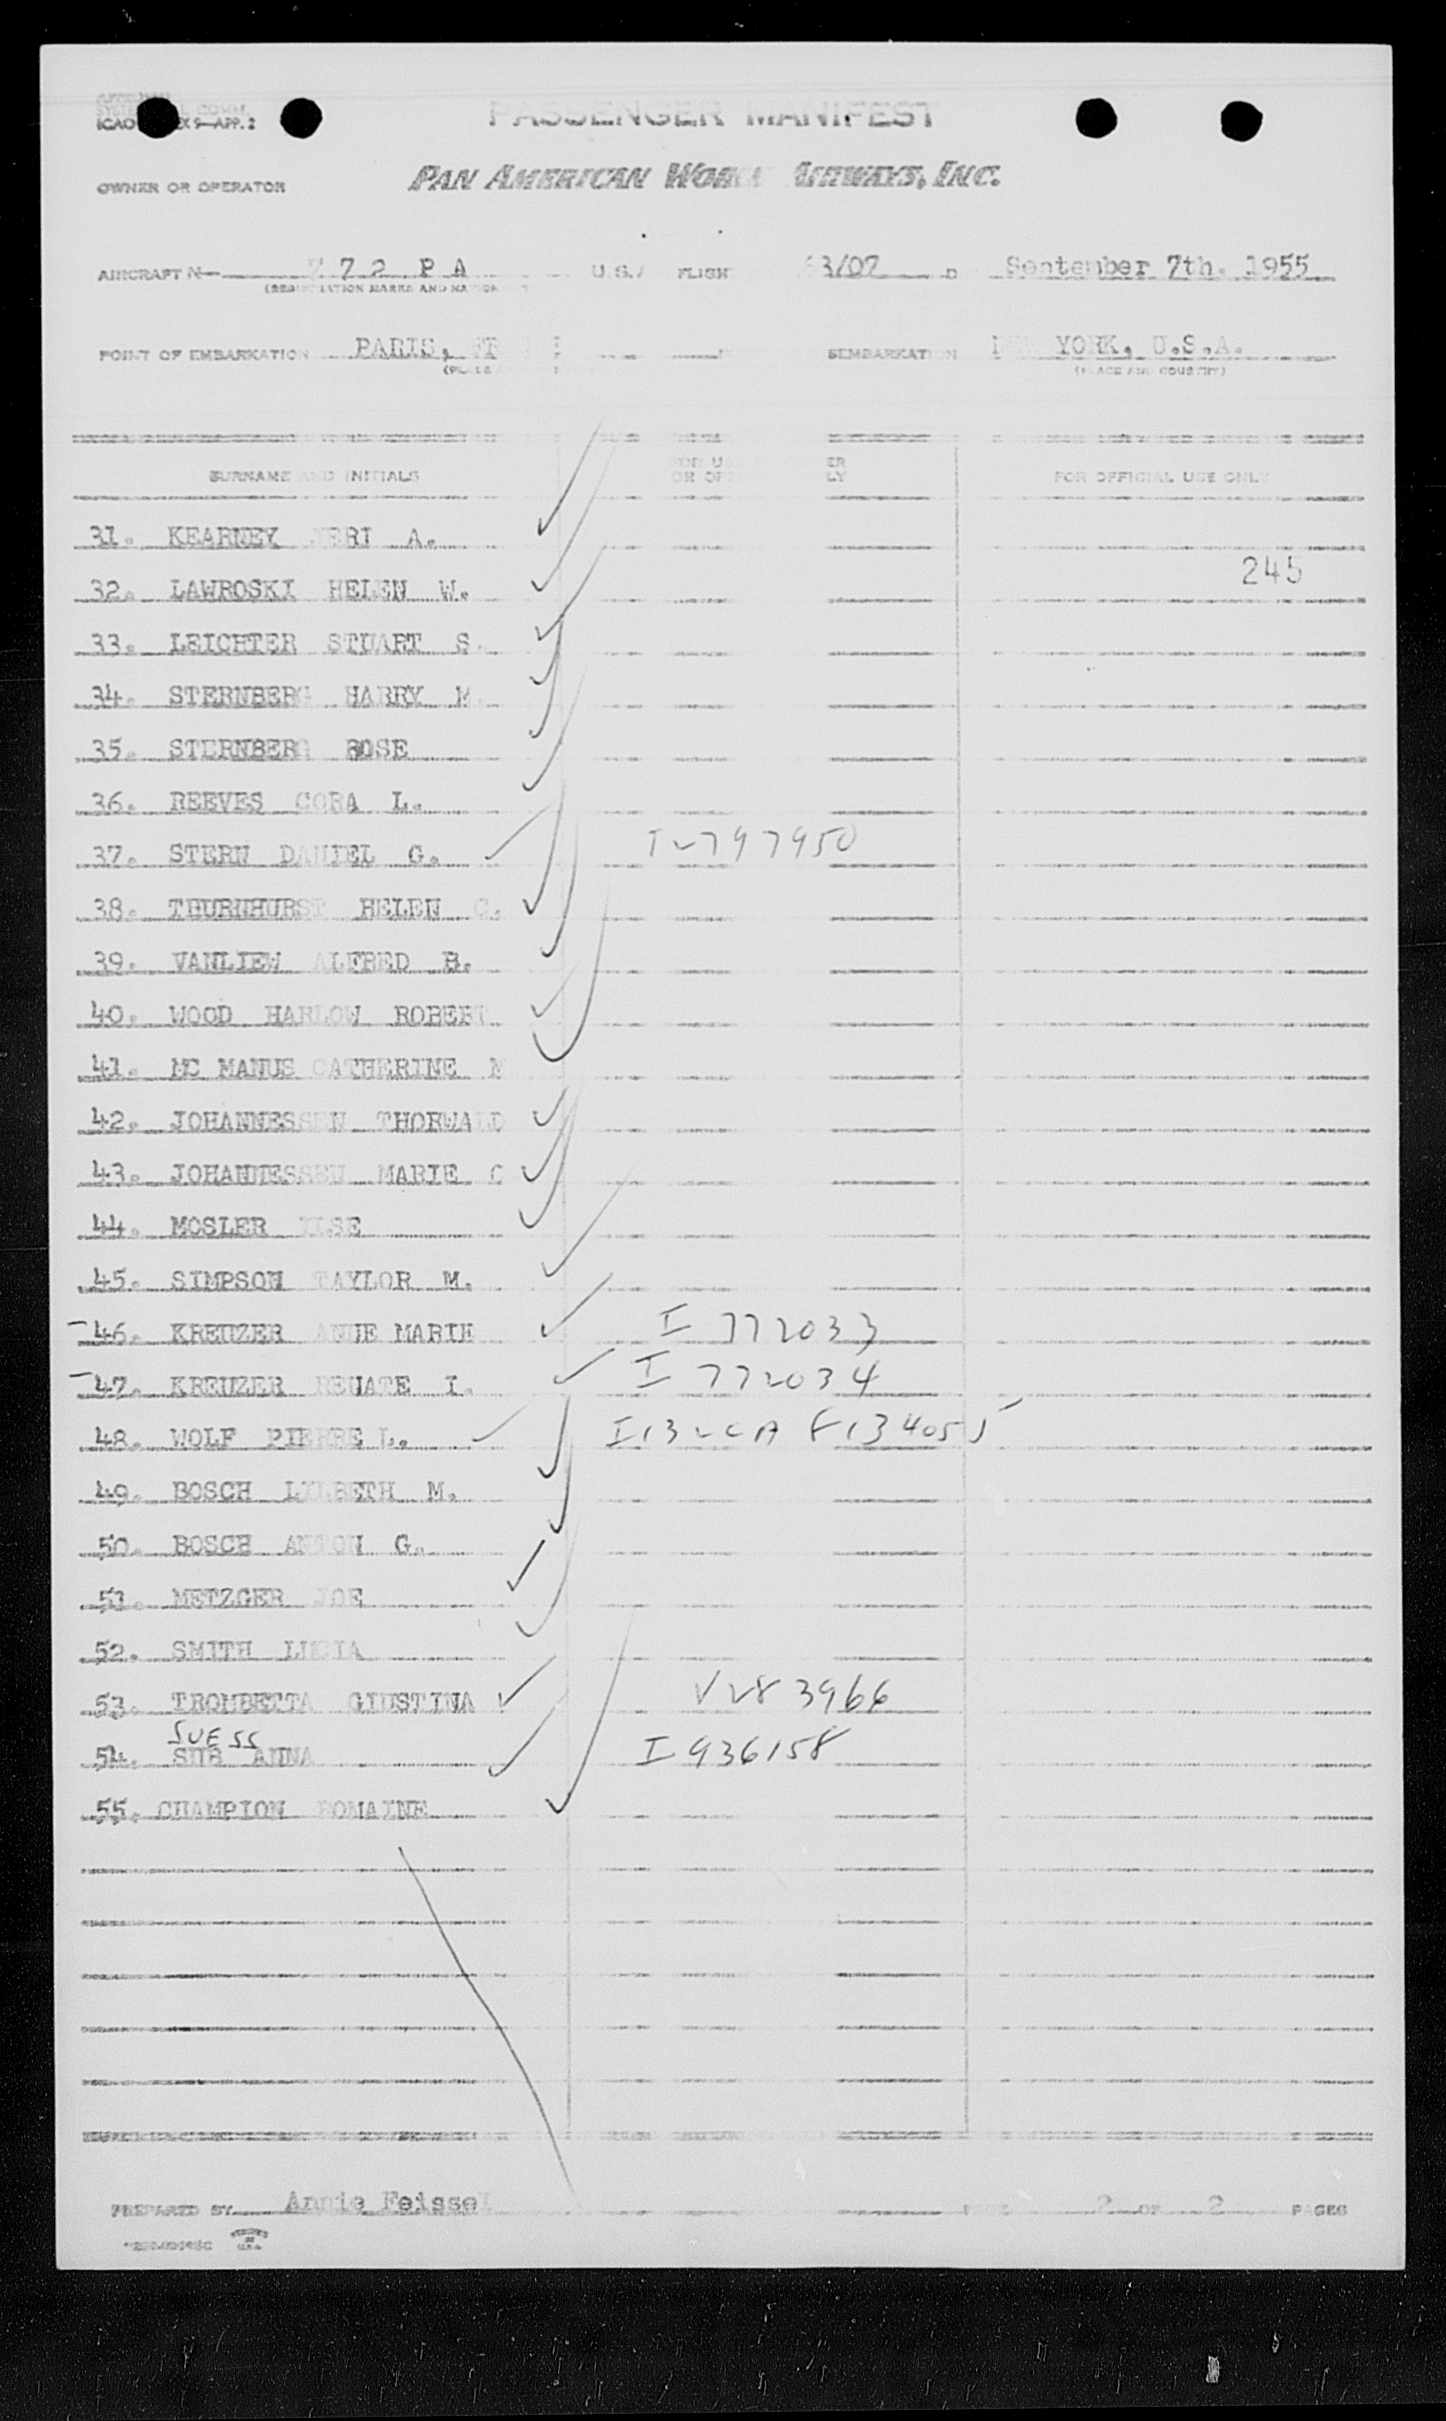 ICAO X 9—APP. 2
PASSENGER MANIFEST
OWNER OR OPERATOR PAN AMERICAN AIRWAYS, INC.
AIRCRAFT 7 2 P A U.S. FLIGHT 3/07 September 7th. 1955
POINT OF EMBARKATION PARIS, YORK, U.S.A.
(PLACE AND COUNTRY)
SURNAME AND INITIALS FOR OFFICIAL USE ONLY
31. KEARNEY A.
245
32. LAWROSKI HELEN W.
33. LEICHTER STUART S.
34. STERNBERG HARRY M.
35. STERNBERG ROSE
36. REEVES CORA L.
37. STERN DANIEL G. I 2797950
38. THURNHURST HELEN C.
39. VANLIEW ALFRED B.
40. WOOD HARLOW ROBERT
41. MC MANUS CATHERINE M
42. JOHANNESSEN THORWALD
43. JOHANNESSEN MARIE C
44. MOSLER ILSE
45. SIMPSON TAYLOR M.
46. KREUZER ANNE MARIE I 772033
47. KREUZER RENATE I. I 772034
48. WOLF PIERRE L.
49. BOSCH M.
50. BOSCH ANTON G.
51. METZGER JOE
52. SMITH
53. TROMBETTA GIUSTINA V283966
SUESS
54. SUB ANNA I 936158
55. CHAMPION ROMAINE
PREPARED BY Annie Feissel 2 OF 2 PAGES